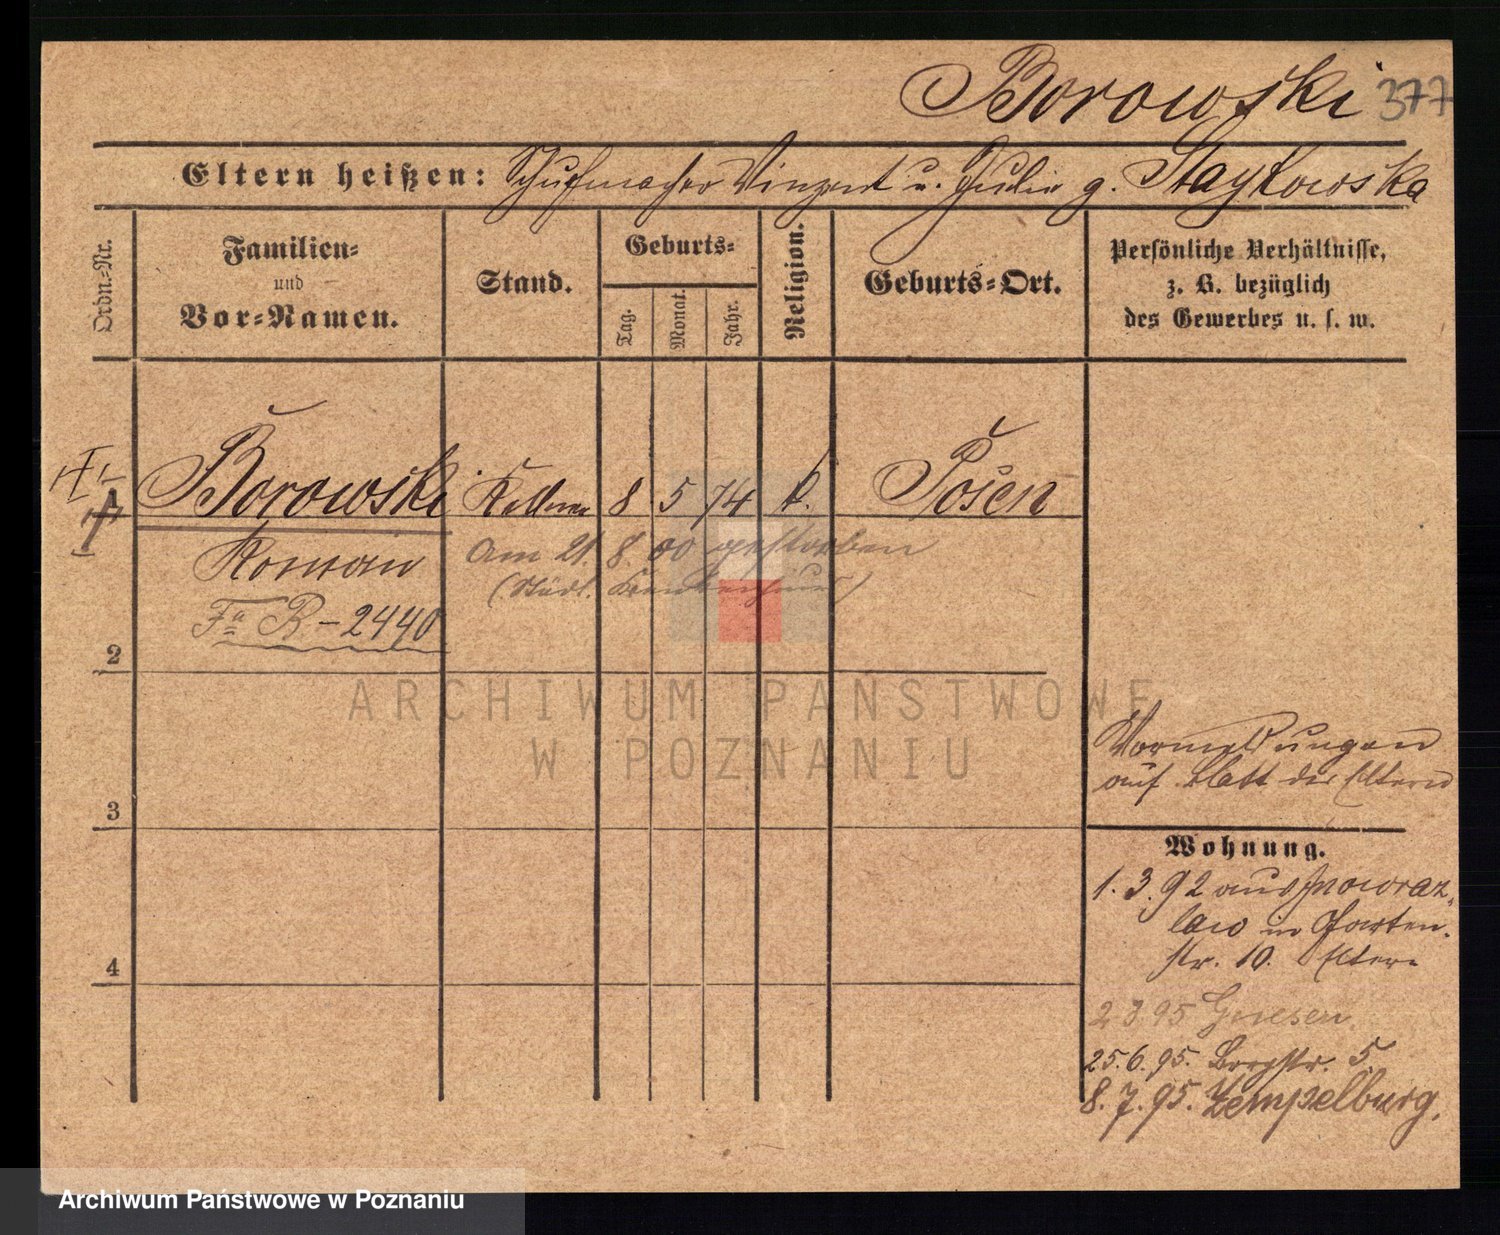 Borowski 377
Eltern heißen: Schuhmacher Vinzent u. Julie g. Staykowska
Ordn.-Nr.
Familien-
und
Vor-Namen.
Stand.
Geburts-
Tag.
Monat.
Jahr.
Religion.
Geburts-Ort.
Persönliche Verhältnisse,
z. B. bezüglich
des Gewerbes u. s. w.
Borowski Kellner 8 5 74 k. Posen
Roman
am 21. 8. 00 gestorben
(Städt. Krankenhaus)
Fa B-2440
2
ARCHIWUM PAŃSTWOWE
W POZNANIU
3
4
Vormeldungen
auf Blatt der Eltern
Wohnung.
1. 3. 92 aus Inowraz-
law in Garten-
str. 10. Eltern
2 3 95 Gnesen
25. 6. 95. Bergstr. 5.
8. 7. 95. Zempelburg.
Archiwum Państwowe w Poznaniu